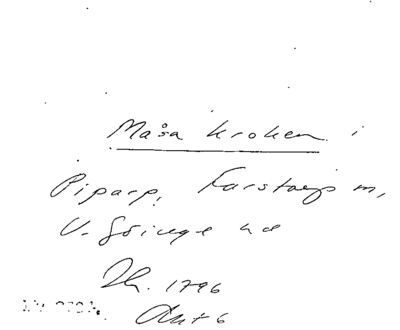 Måsa kroken i
Piparp, Farstorp m,
V. Göinge hd
Th. 1796
Akt 6